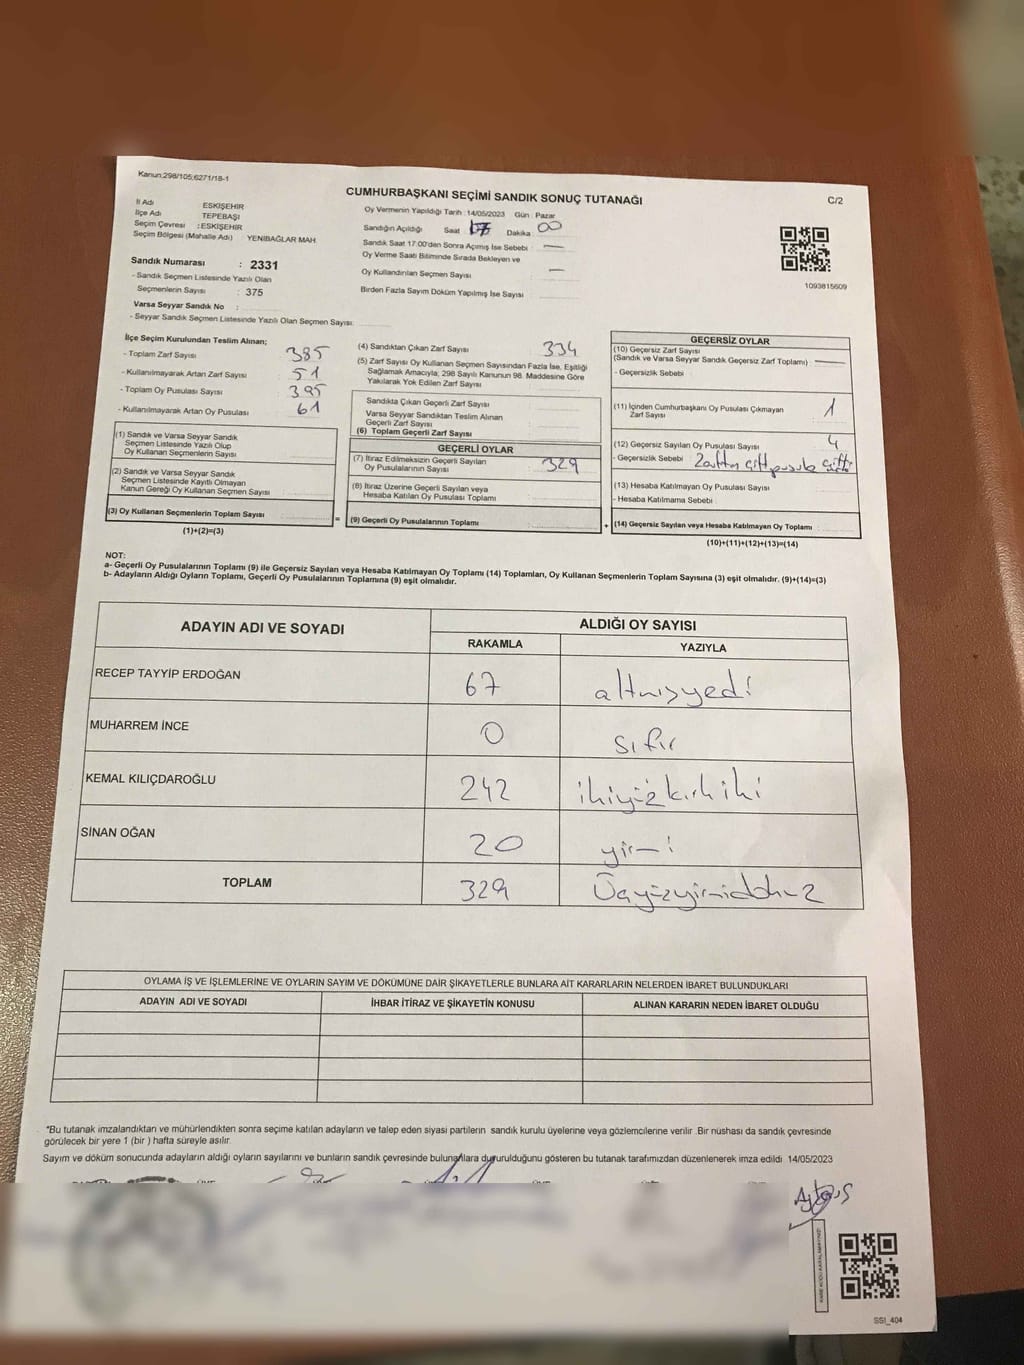 Kanun:298/105;6271/18-1
CUMHURBAŞKANI SEÇİMİ SANDIK SONUÇ TUTANAĞI
C/2
İl Adı ESKİŞEHİR
İlçe Adı TEPEBAŞI
Seçim Çevresi : ESKİŞEHİR
Seçim Bölgesi (Mahalle Adı) YENİBAĞLAR MAH.
Oy Vermenin Yapıldığı Tarih : 14/05/2023 Gün : Pazar
Sandığın Açıldığı Saat 17 Dakika 00
Sandık Saat 17:00'dan Sonra Açımış İse Sebebi : —
Oy Verme Saati Bitiminde Sırada Bekleyen ve
Oy Kullandırılan Seçmen Sayısı —
Birden Fazla Sayım Döküm Yapılmış İse Sayısı
1093815609
Sandık Numarası : 2331
- Sandık Seçmen Listesinde Yazılı Olan
Seçmenlerin Sayısı : 375
Varsa Seyyar Sandık No :
- Seyyar Sandık Seçmen Listesinde Yazılı Olan Seçmen Sayısı:
İlçe Seçim Kurulundan Teslim Alınan;
- Toplam Zarf Sayısı 385
- Kullanılmayarak Artan Zarf Sayısı 51
- Toplam Oy Pusulası Sayısı 395
- Kullanılmayarak Artan Oy Pusulası 61
(1) Sandık ve Varsa Seyyar Sandık
Seçmen Listesinde Yazılı Olup
Oy Kullanan Seçmenlerin Sayısı
(2) Sandık ve Varsa Seyyar Sandık
Seçmen Listesinde Kayıtlı Olmayan
Kanun Gereği Oy Kullanan Seçmen Sayısı
(3) Oy Kullanan Seçmenlerin Toplam Sayısı
(1)+(2)=(3)
(4) Sandıktan Çıkan Zarf Sayısı 334
(5) Zarf Sayısı Oy Kullanan Seçmen Sayısından Fazla İse, Eşitliği
Sağlamak Amacıyla, 298 Sayılı Kanunun 98. Maddesine Göre
Yakılarak Yok Edilen Zarf Sayısı
Sandıkta Çıkan Geçerli Zarf Sayısı
Varsa Seyyar Sandıktan Teslim Alınan
Geçerli Zarf Sayısı
(6) Toplam Geçerli Zarf Sayısı
GEÇERLİ OYLAR
(7) İtiraz Edilmeksizin Geçerli Sayılan
Oy Pusulalarının Sayısı 329
(8) İtiraz Üzerine Geçerli Sayılan veya
Hesaba Katılan Oy Pusulası Toplamı
= (9) Geçerli Oy Pusulalarının Toplamı
GEÇERSİZ OYLAR
(10) Geçersiz Zarf Sayısı
(Sandık ve Varsa Seyyar Sandık Geçersiz Zarf Toplamı) —
- Geçersizlik Sebebi :
(11) İçinden Cumhurbaşkanı Oy Pusulası Çıkmayan
Zarf Sayısı 1
(12) Geçersiz Sayılan Oy Pusulası Sayısı 4
- Geçersizlik Sebebi Zarftan çift pusula çıktı
(13) Hesaba Katılmayan Oy Pusulası Sayısı
- Hesaba Katılmama Sebebi :
+ (14) Geçersiz Sayılan veya Hesaba Katılmayan Oy Toplamı
(10)+(11)+(12)+(13)=(14)
NOT:
a- Geçerli Oy Pusulalarının Toplamı (9) ile Geçersiz Sayılan veya Hesaba Katılmayan Oy Toplamı (14) Toplamları, Oy Kullanan Seçmenlerin Toplam Sayısına (3) eşit olmalıdır. (9)+(14)=(3)
b- Adayların Aldığı Oyların Toplamı, Geçerli Oy Pusulalarının Toplamına (9) eşit olmalıdır.
ADAYIN ADI VE SOYADI ALDIĞI OY SAYISI
RAKAMLA YAZIYLA
RECEP TAYYİP ERDOĞAN 67 altmışyedi
MUHARREM İNCE 0 sıfır
KEMAL KILIÇDAROĞLU 242 ikiyüzkırkiki
SİNAN OĞAN 20 yirmi
TOPLAM 329 Üçyüzyirmidokuz
OYLAMA İŞ VE İŞLEMLERİNE VE OYLARIN SAYIM VE DÖKÜMÜNE DAİR ŞİKAYETLERLE BUNLARA AİT KARARLARIN NELERDEN İBARET BULUNDUKLARI
ADAYIN ADI VE SOYADI İHBAR İTİRAZ VE ŞİKAYETİN KONUSU ALINAN KARARIN NEDEN İBARET OLDUĞU
*Bu tutanak imzalandıktan ve mühürlendikten sonra seçime katılan adayların ve talep eden siyasi partilerin sandık kurulu üyelerine veya gözlemcilerine verilir .Bir nüshası da sandık çevresinde
görülecek bir yere 1 (bir ) hafta süreyle asılır.
Sayım ve döküm sonucunda adayların aldığı oyların sayılarını ve bunların sandık çevresinde bulunanlara duyurulduğunu gösteren bu tutanak tarafımızdan düzenlenerek imza edildi 14/05/2023
SSI_404